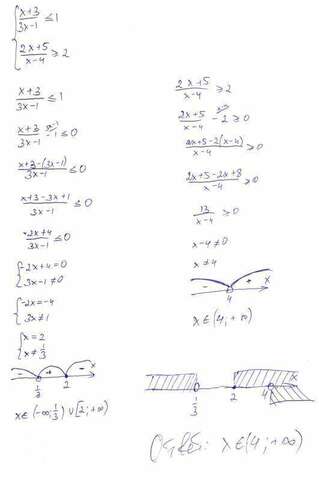 { (x+3)/(3x-1) ≤ 1
{ (2x+5)/(x-4) ≥ 2
(x+3)/(3x-1) ≤ 1
(x+3)/(3x-1) - 1 ≤ 0
(x+3-(3x-1))/(3x-1) ≤ 0
(x+3-3x+1)/(3x-1) ≤ 0
(-2x+4)/(3x-1) ≤ 0
{ -2x+4=0
{ 3x-1≠0
{ -2x=-4
{ 3x≠1
{ x=2
{ x≠1/3
- + - x
1/3 2
x∈(-∞;1/3)∪[2;+∞)
(2x+5)/(x-4) ≥ 2
(2x+5)/(x-4) - 2 ≥ 0
(2x+5-2(x-4))/(x-4) ≥ 0
(2x+5-2x+8)/(x-4) ≥ 0
13/(x-4) ≥ 0
x-4≠0
x≠4
- + x
4
x∈(4;+∞)
1/3 2 4 x
Ответ: x∈(4;+∞)